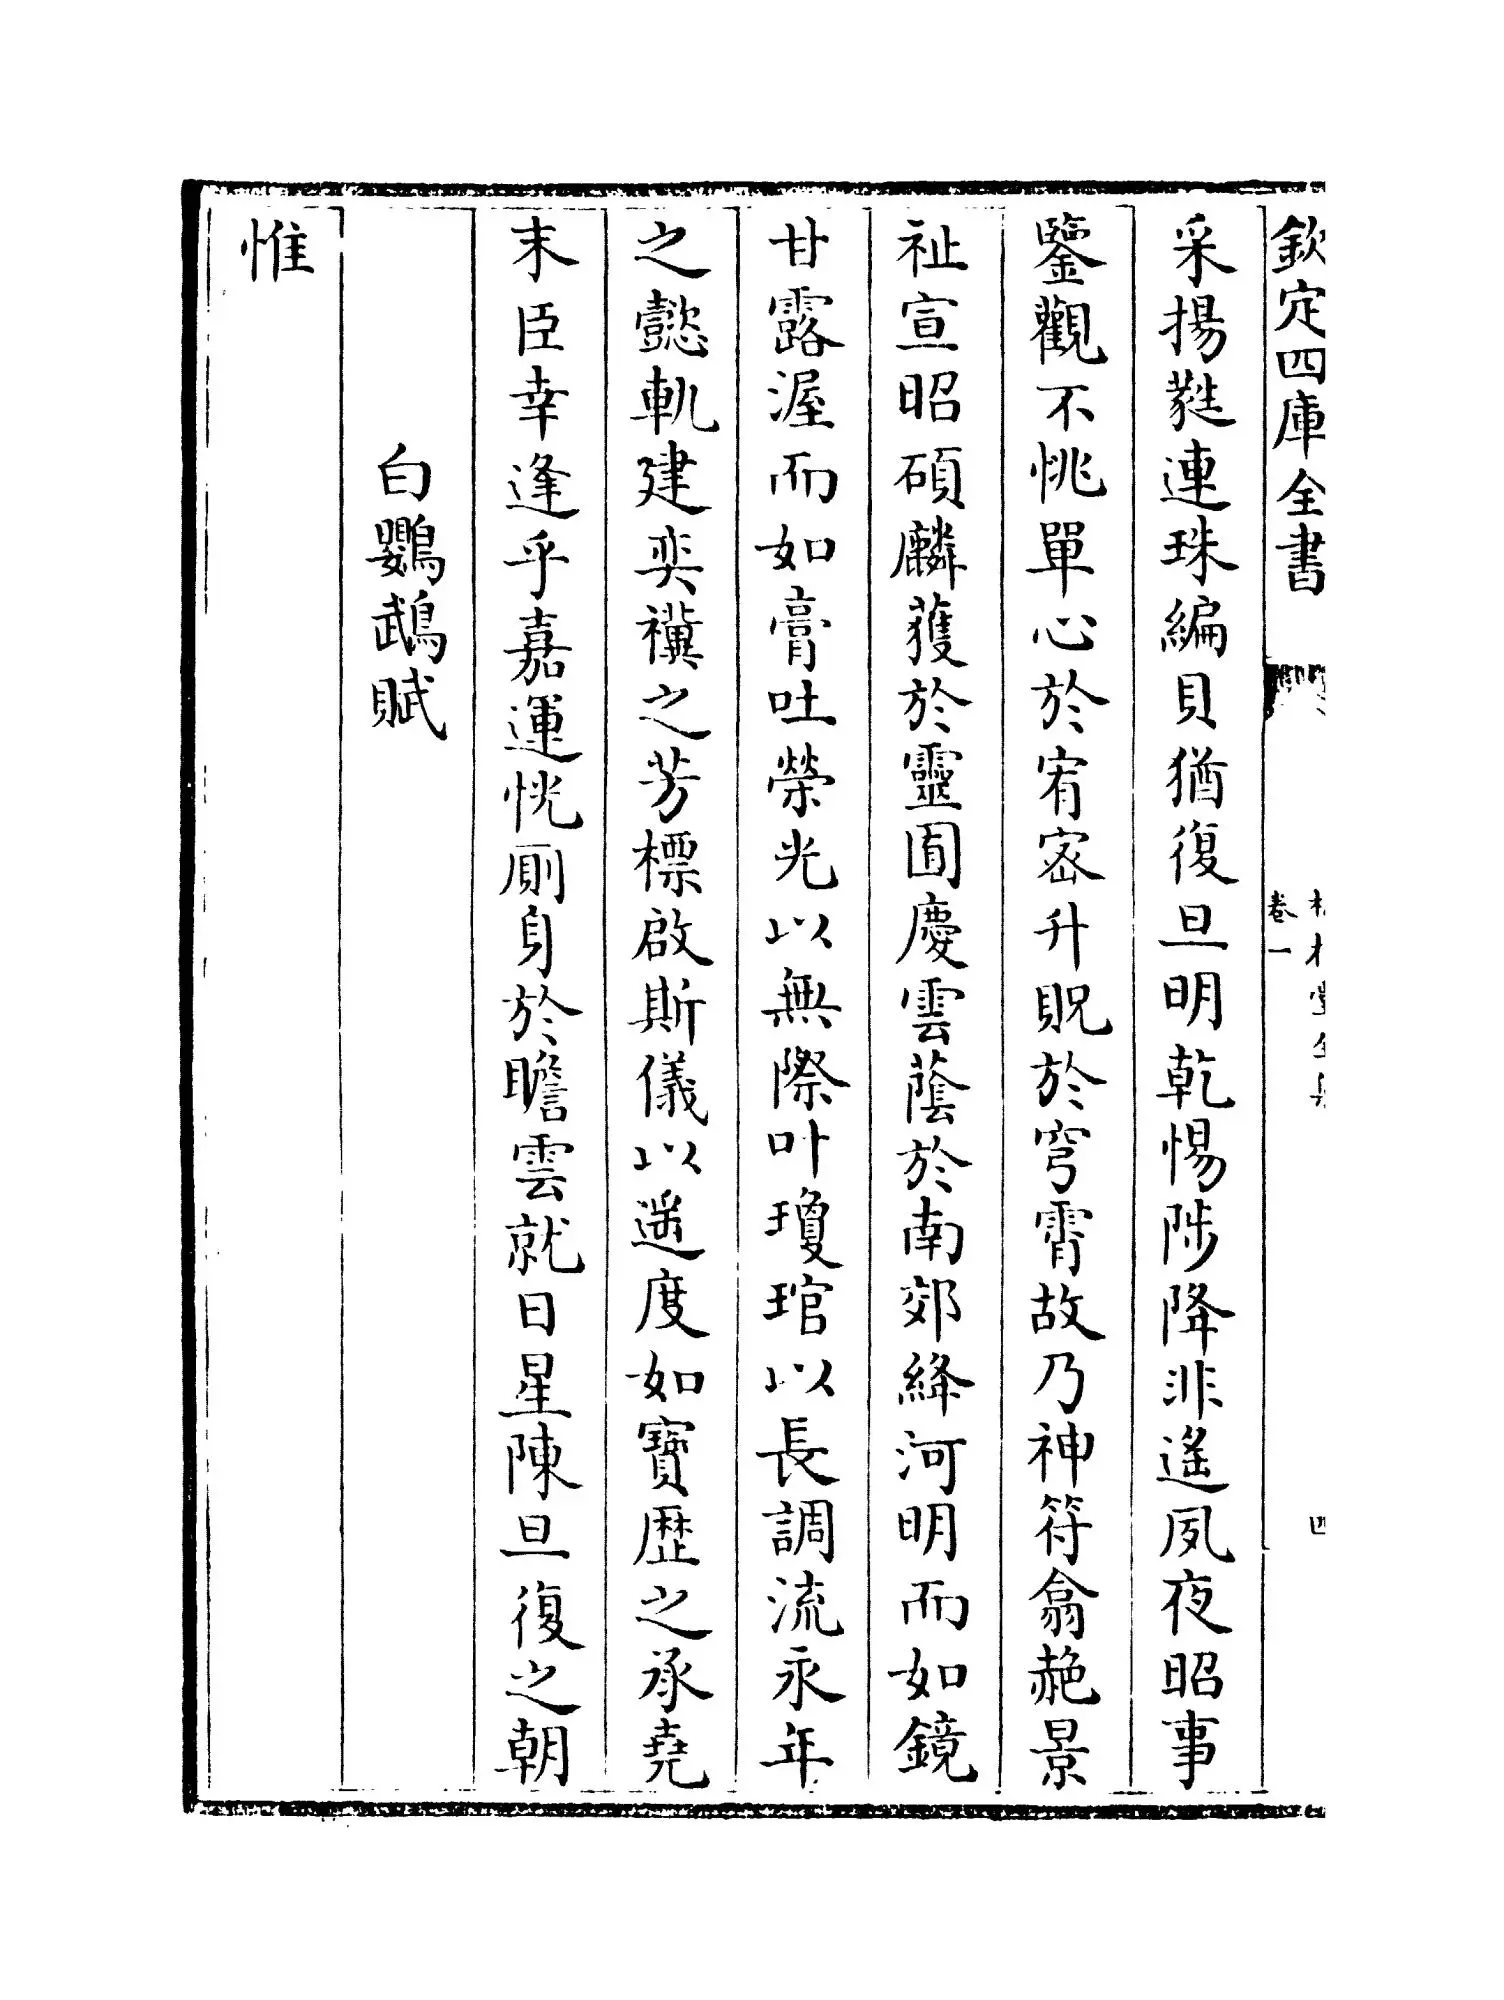 欽定四庫全書
卷一
采揚蕤連珠編貝猶復旦明乾惕陟降非遙夙夜昭事
鑒觀不恌單心於宥宻升貺於穹霄故乃神符翕赩景
祉宣昭碩麟獲於靈囿慶雲蔭於南郊絳河明而如鏡
甘露渥而如膏吐榮光以無際叶瓊琯以長調流永年
之懿軌建奕禩之芳標啟斯儀以遥度如寳歴之承堯
末臣幸逢乎嘉運恍厠身於瞻雲就日星陳旦復之朝
白鸚鵡賦
惟